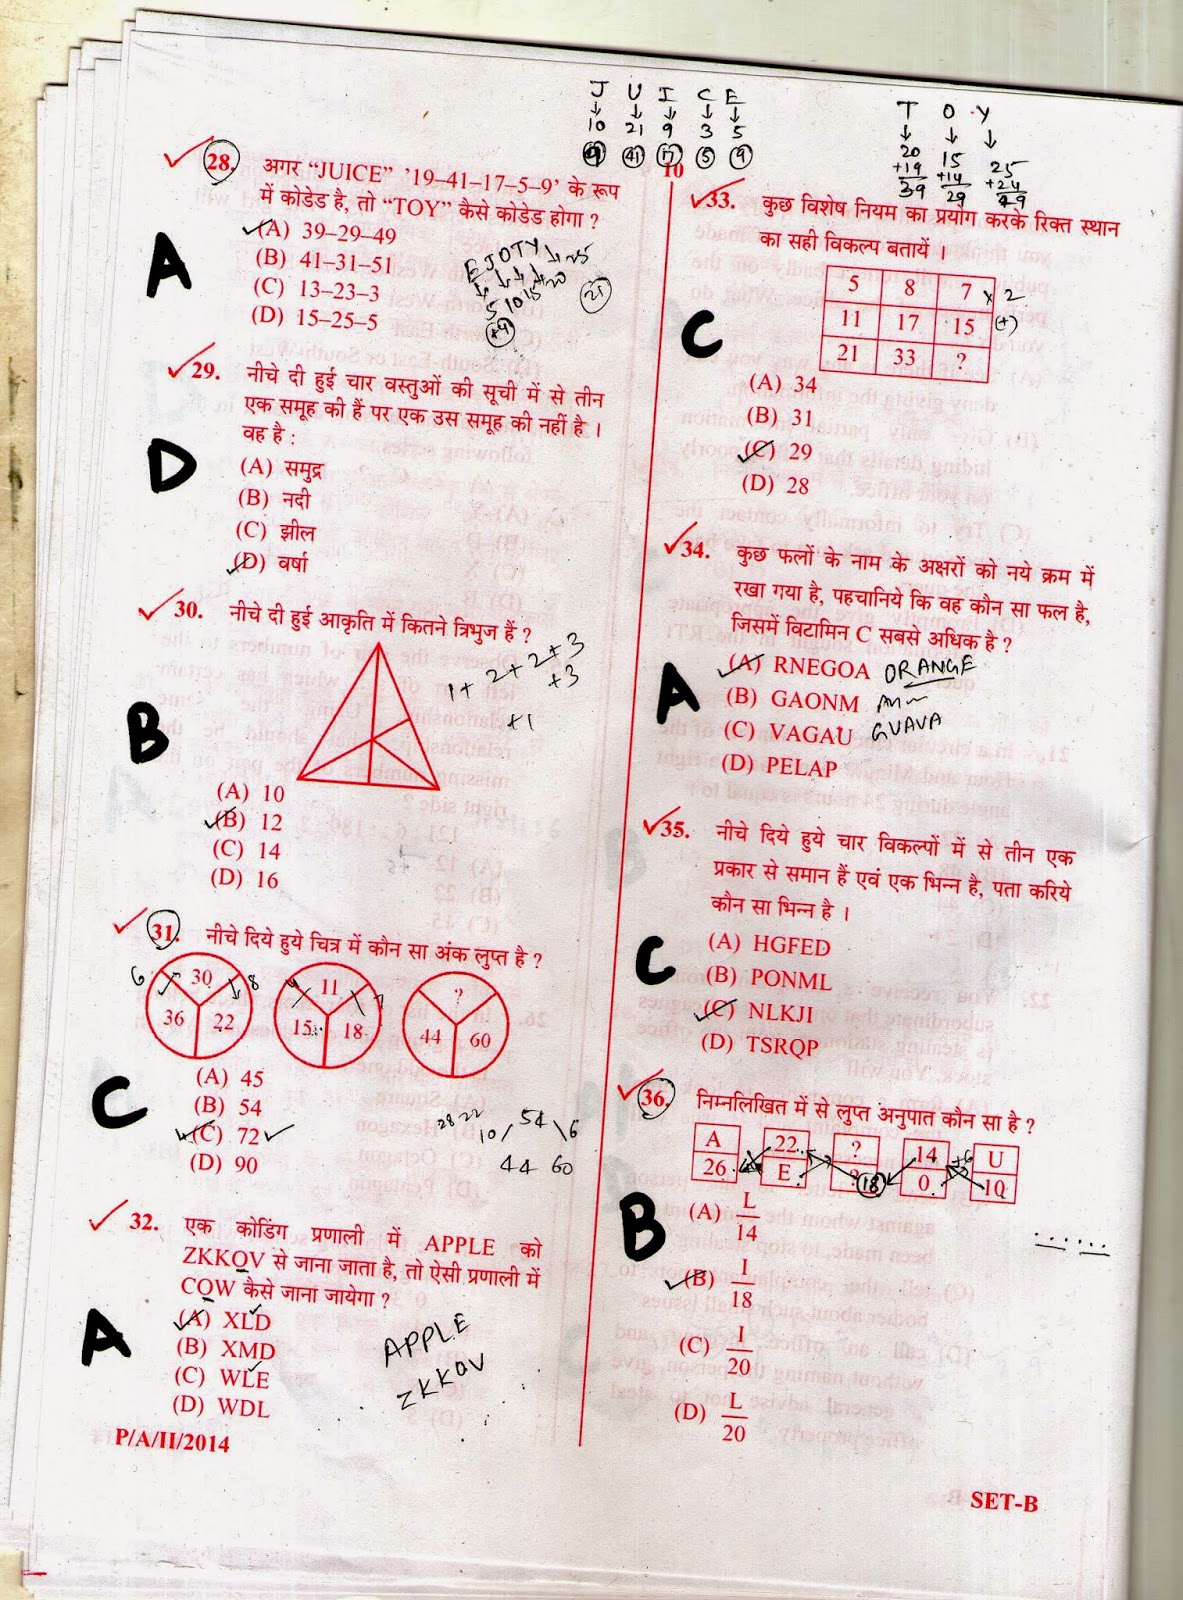 J U I C E
10 21 9 3 5
41 17 5 9
T O Y
20 15 25
+19 +14 +24
39 29 49
10
28. अगर “JUICE” ’19–41–17–5–9’ के रूप
में कोडेड है, तो “TOY” कैसे कोडेड होगा ?
A
(A) 39–29–49
(B) 41–31–51
(C) 13–23–3
(D) 15–25–5
E J O T Y 25
5 10 15 20
21
29. नीचे दी हुई चार वस्तुओं की सूची में से तीन
एक समूह की हैं पर एक उस समूह की नहीं है ।
वह है :
D
(A) समुद्र
(B) नदी
(C) झील
(D) वर्षा
30. नीचे दी हुई आकृति में कितने त्रिभुज हैं ?
1+2+2+3
+3
+1
B
(A) 10
(B) 12
(C) 14
(D) 16
31. नीचे दिये हुये चित्र में कौन सा अंक लुप्त है ?
6 30 8 11 7 ?
36 22 15 18 44 60
C
(A) 45
(B) 54
(C) 72
(D) 90
28 22
10 54 6
44 60
32. एक कोडिंग प्रणाली में APPLE को
ZKKOV से जाना जाता है, तो ऐसी प्रणाली में
COW कैसे जाना जायेगा ?
A
(A) XLD
(B) XMD
(C) WLE
(D) WDL
APPLE
ZKKOV
P/A/II/2014
33. कुछ विशेष नियम का प्रयोग करके रिक्त स्थान
का सही विकल्प बतायें ।
5 8 7 × 2
11 17 15 (+)
21 33 ?
C
(A) 34
(B) 31
(C) 29
(D) 28
34. कुछ फलों के नाम के अक्षरों को नये क्रम में
रखा गया है, पहचानिये कि वह कौन सा फल है,
जिसमें विटामिन C सबसे अधिक है ?
A
(A) RNEGOA ORANGE
(B) GAONM
(C) VAGAU GUAVA
(D) PELAP
35. नीचे दिये हुये चार विकल्पों में से तीन एक
प्रकार से समान हैं एवं एक भिन्न है, पता करिये
कौन सा भिन्न है ।
C
(A) HGFED
(B) PONML
(C) NLKJI
(D) TSRQP
36. निम्नलिखित में से लुप्त अनुपात कौन सा है ?
A 22 ? 14 +6 U
26 E ? 18 0 10
B
(A) L
14
(B) I
18
(C) I
20
(D) L
20
SET-B